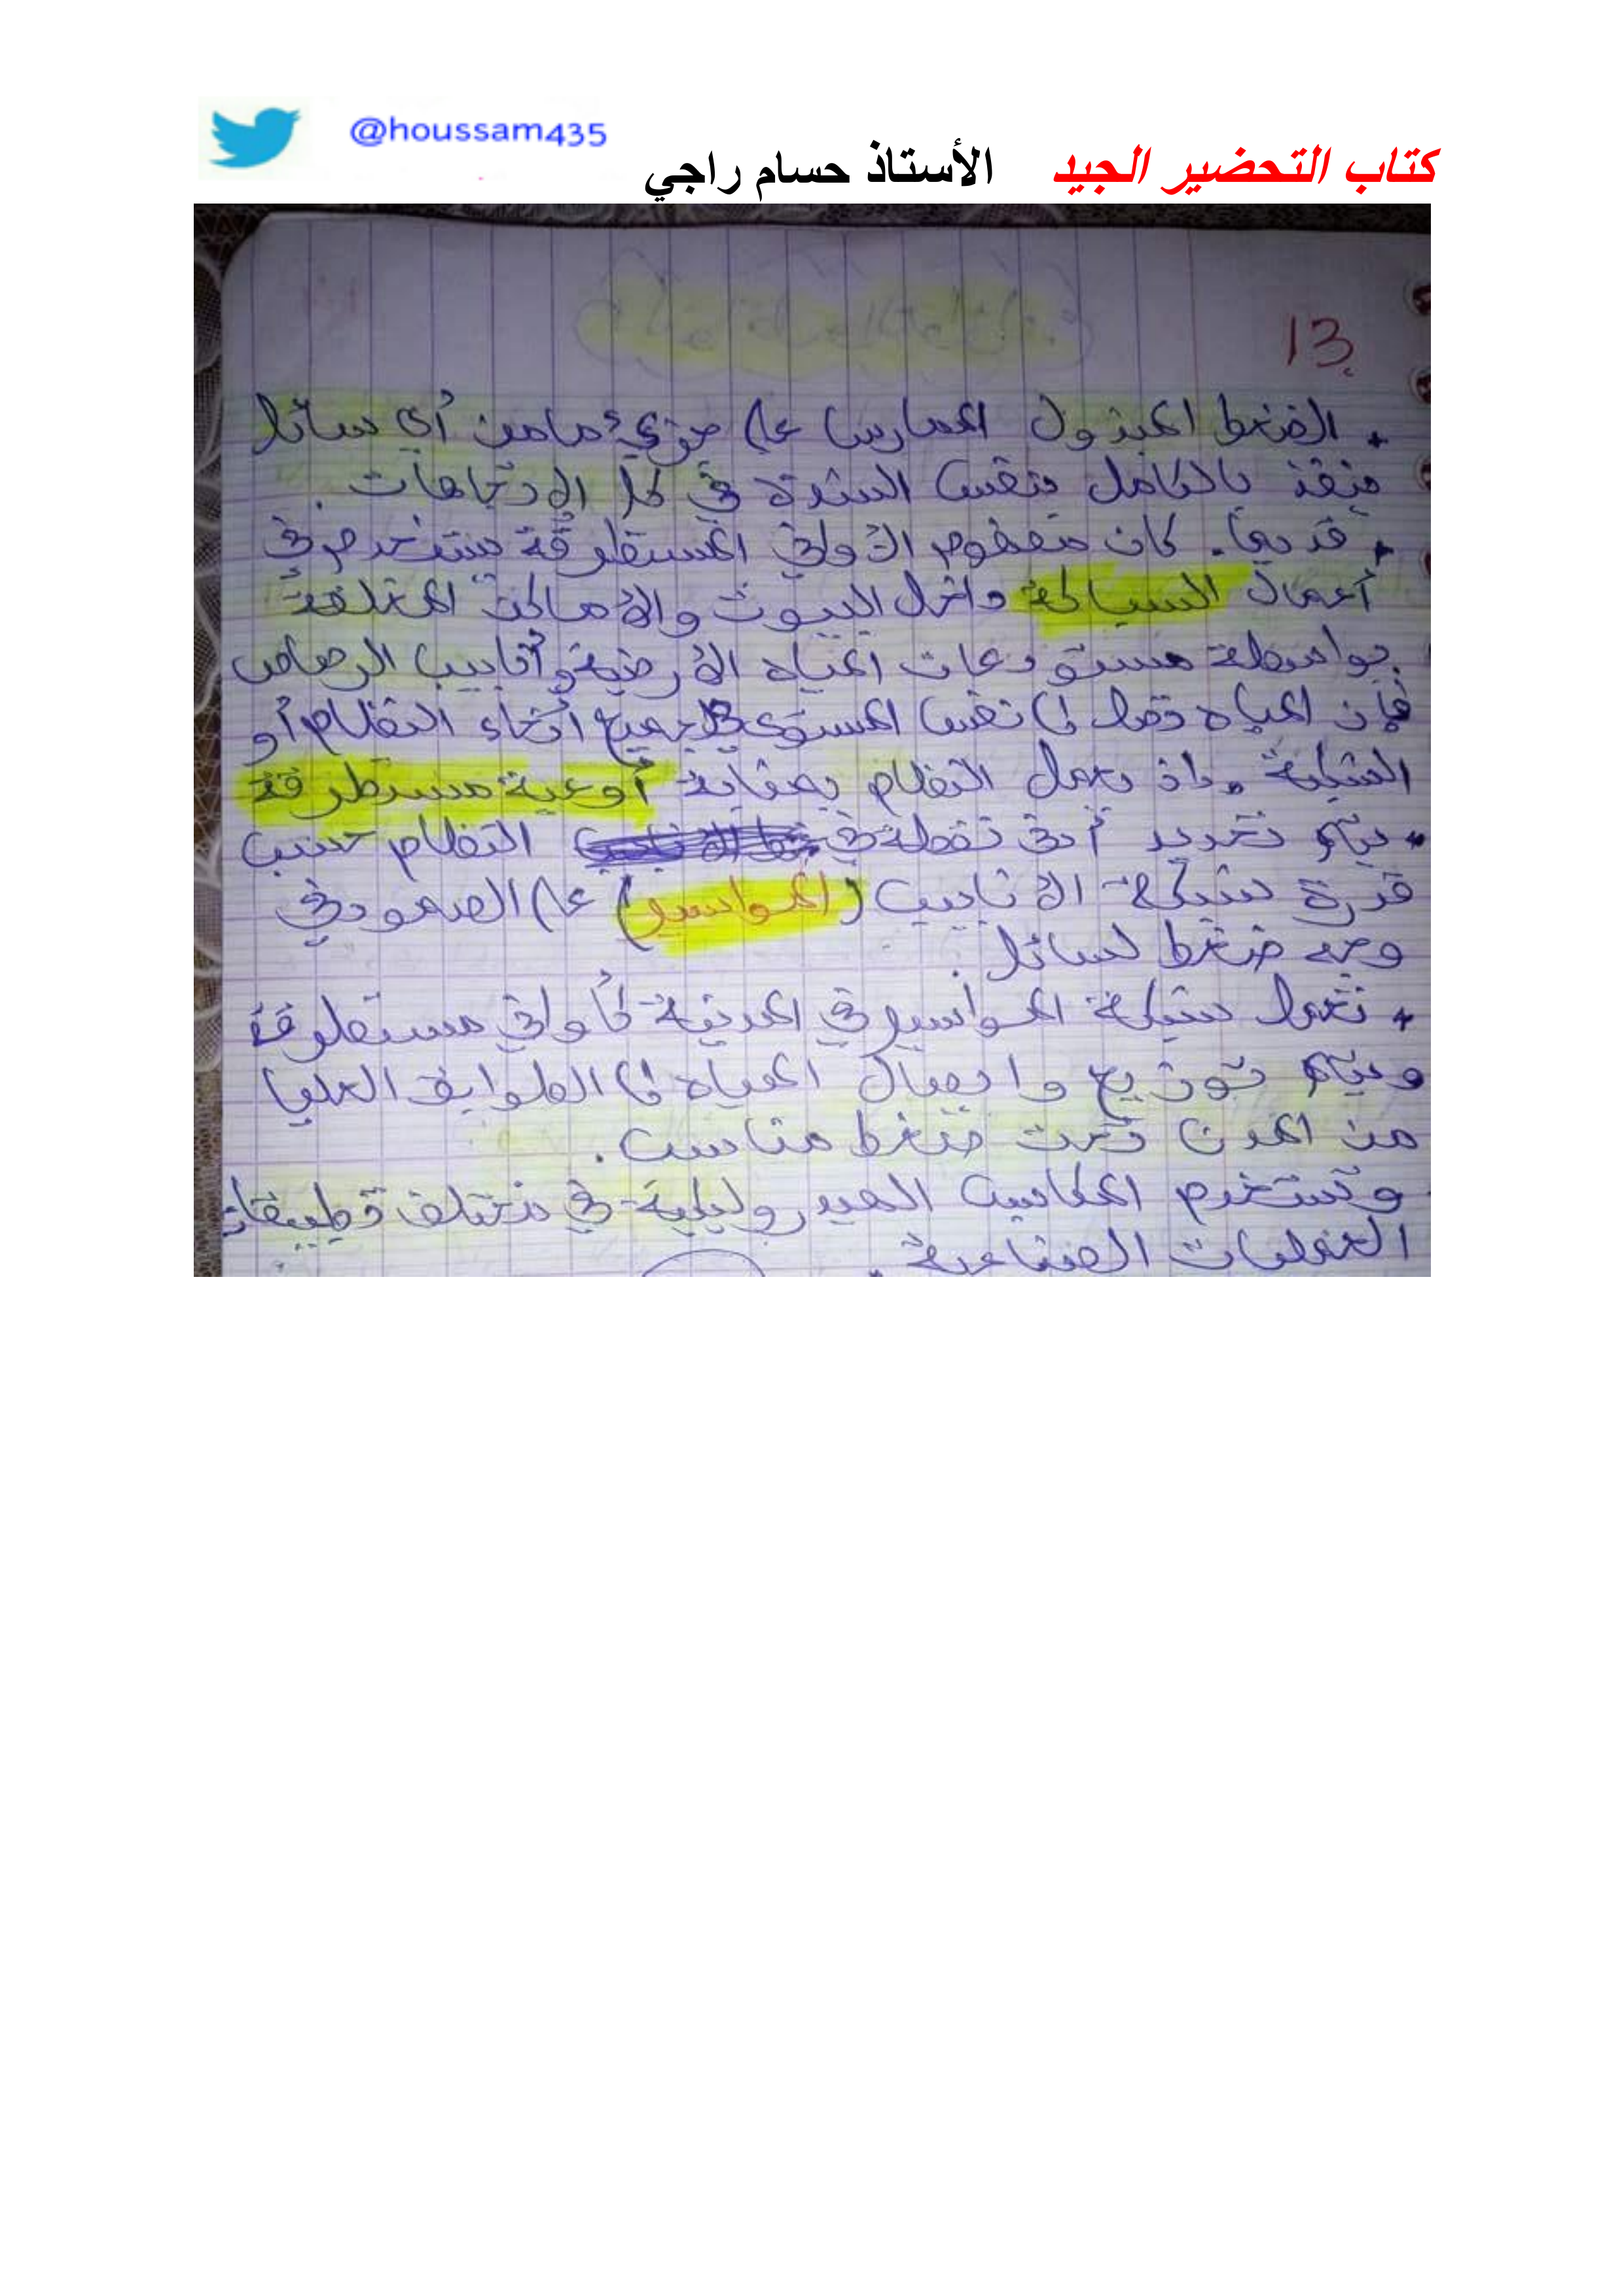 @houssam435
كتاب التحضير الجيد الأستاذ حسام راجي
13
* الضغط المبذول الممارس على جزيء ما من أي سائل
ينفذ بالكامل بنفس الشدة في كل الاتجاهات.
* قديما. كان مفهوم الأواني المستطرقة يستخدم في
أعمال السباكة داخل البيوت والأماكن المختلفة
بواسطة مستودعات المياه الأرضية وأنابيب الرصاص
فإن المياه تصل الى نفس المستوى جميع أنحاء النظام أو
الشبكة. إذ يعمل النظام بمثابة أوعية مستطرقة
* يتم تحديد أدنى نقطة في النظام حسب
قدرة شبكة الأنابيب (المواسير) على الصمود في
وجه ضغط لسائل.
* تعمل شبكة المواسير في المدينة كأواني مستطرقة
ويتم توزيع وايصال المياه الى الطوابق العليا
من المدن تحت ضغط مناسب.
وتستخدم المكابس الهيدروليكية في مختلف تطبيقات
العمليات الصناعية.